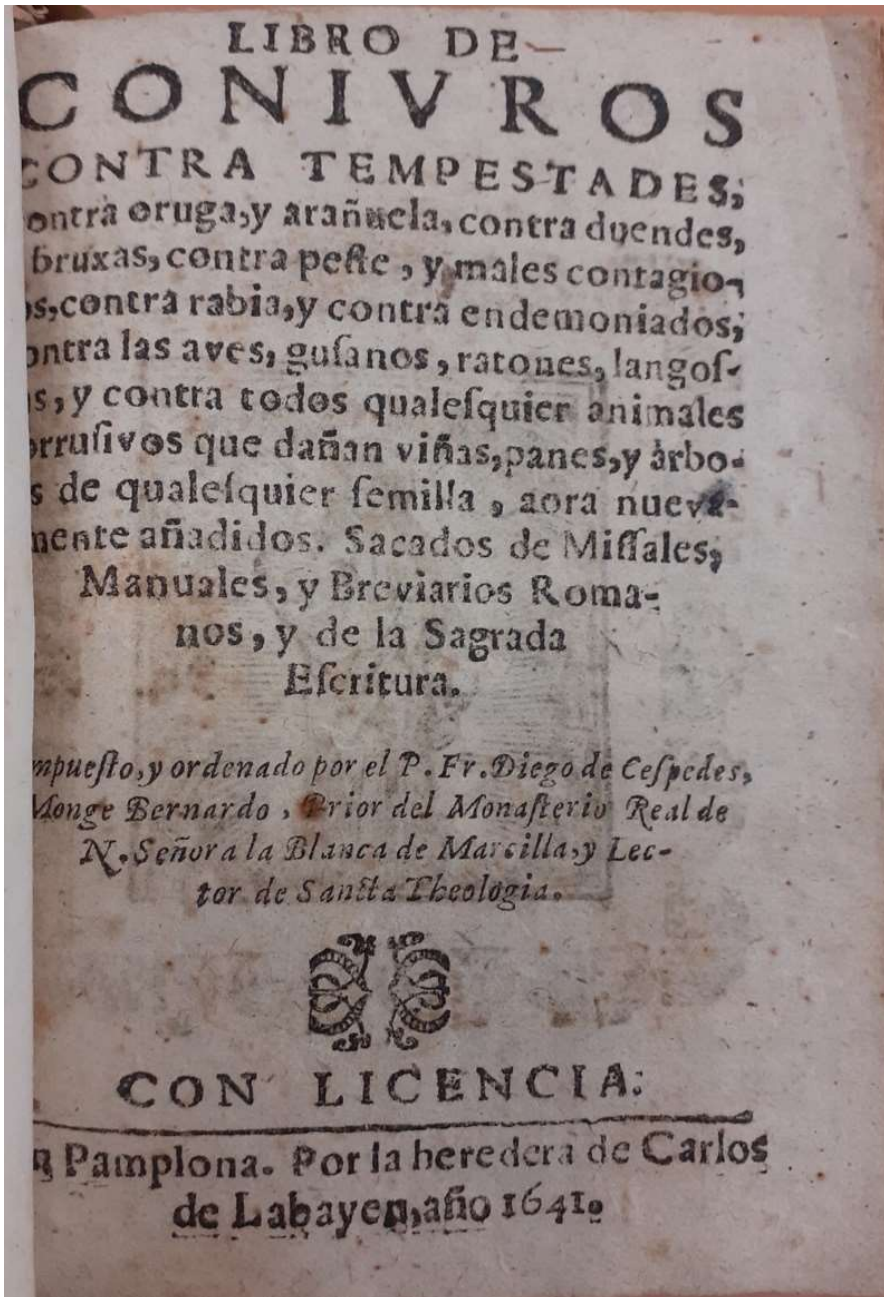 LIBRO DE
CONIVROS
CONTRA TEMPESTADES,
ontra oruga, y arañuela, contra duendes,
bruxas, contra peſte, y males contagio-
os, contra rabia, y contra endemoniados,
ontra las aves, guſanos, ratones, langoſ-
as, y contra todos qualeſquier animales
orruſivos que dañan viñas, panes, y àrbo-
s de qualeſquier ſemilla, aora nueva-
mente añadidos. Sacados de Miſſales,
Manuales, y Breviarios Roma-
nos, y de la Sagrada
Eſcritura.
mpueſto, y ordenado por el P. Fr. Diego de Ceſpedes,
Monge Bernardo, Prior del Monaſterio Real de
N. Señora la Blanca de Marcilla, y Lec-
tor de Sancta Theologia.
CON LICENCIA.
n Pamplona. Por la heredera de Carlos
de Labayen, año 1641.